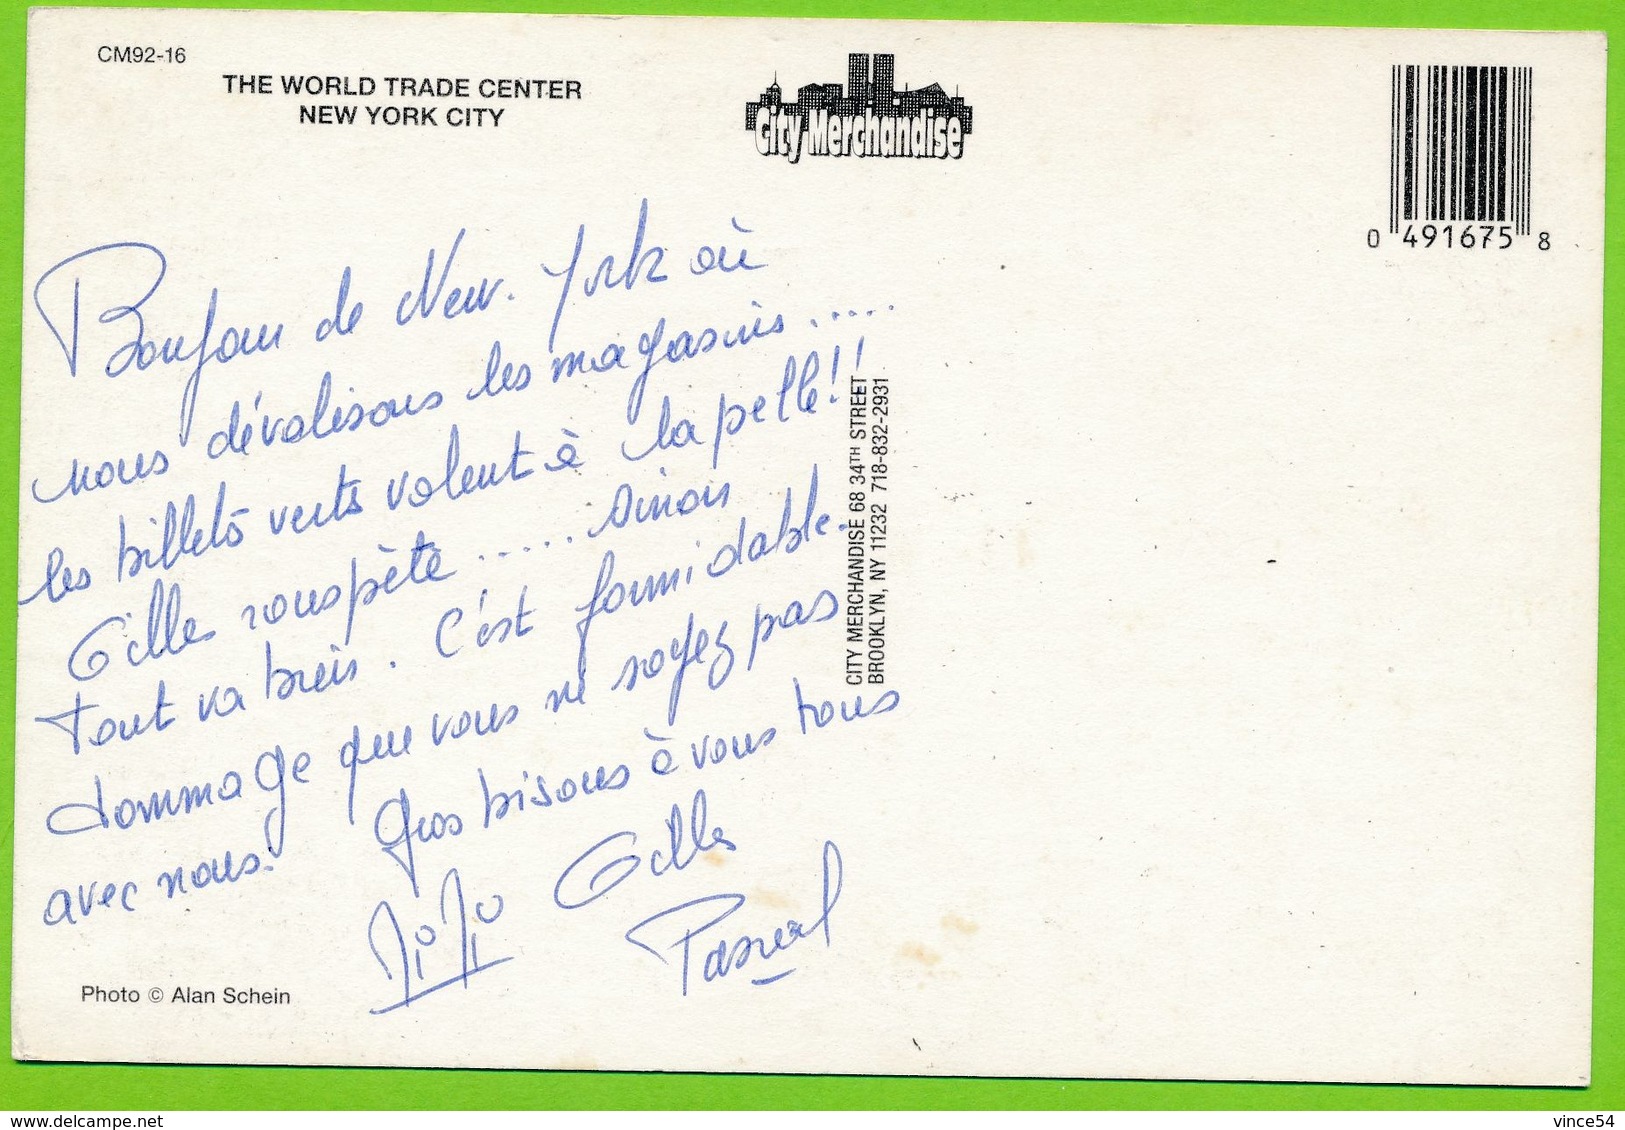 CM92-16
THE WORLD TRADE CENTER
NEW YORK CITY
City Merchandise
0 491675 8
Bonjour de New-York où
nous dévalisons les magasins.....
les billets verts volent à la pelle!!
Gilles rouspète ..... sinon
tout va bien. C'est formidable.
dommage que vous ne soyez pas
avec nous. Gros bisous à vous tous
Gilles
Pascal
CITY MERCHANDISE 68 34TH STREET
BROOKLYN, NY 11232 718-832-2931
Photo © Alan Schein
delcampe.net
vince54